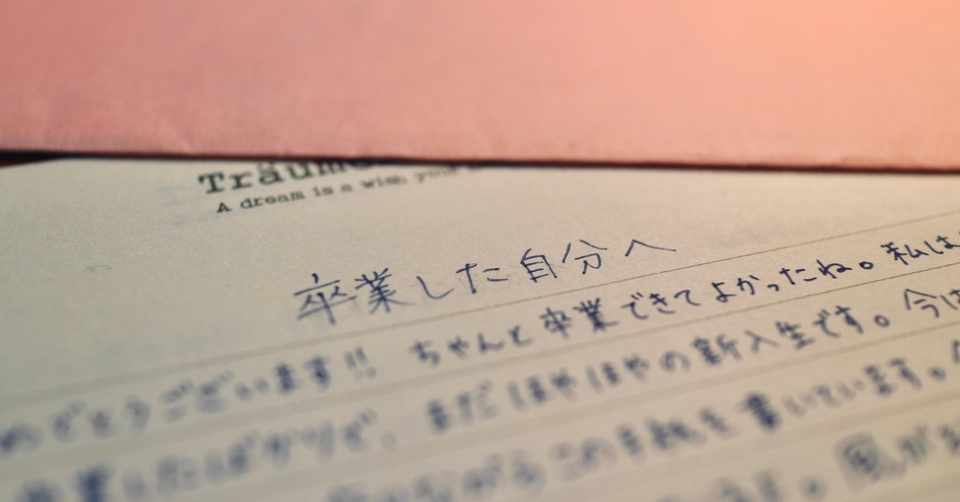 Träum
A dream is a wish your
卒業した自分へ
めでとうございます!! ちゃんと卒業できてよかったね。私は
卒業したばかりで、まだほやほやの新入生です。今は
ながらこの手紙を書いています。
風が